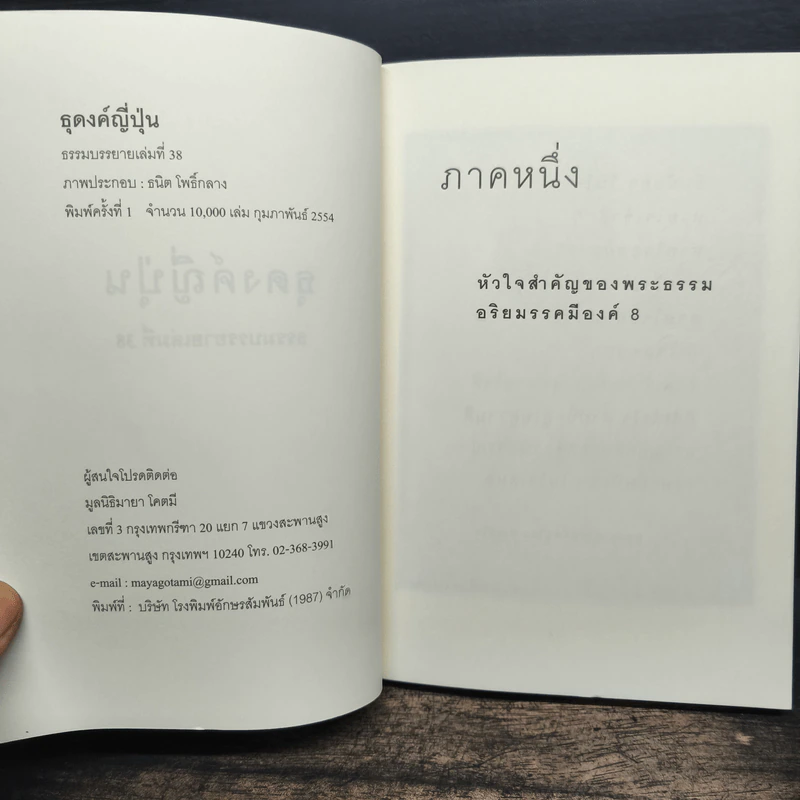 ธุดงค์ญี่ปุ่น
ธรรมบรรยายเล่มที่ 38
ภาพประกอบ : ธนิต โพธิ์กลาง
พิมพ์ครั้งที่ 1 จำนวน 10,000 เล่ม กุมภาพันธ์ 2554
ผู้สนใจโปรดติดต่อ
มูลนิธิมายา โคตมี
เลขที่ 3 กรุงเทพกรีฑา 20 แยก 7 แขวงสะพานสูง
เขตสะพานสูง กรุงเทพฯ 10240 โทร. 02-368-3991
e-mail : mayagotami@gmail.com
พิมพ์ที่ : บริษัท โรงพิมพ์อักษรสัมพันธ์ (1987) จำกัด
ภาคหนึ่ง
หัวใจสำคัญของพระธรรม
อริยมรรคมีองค์ 8